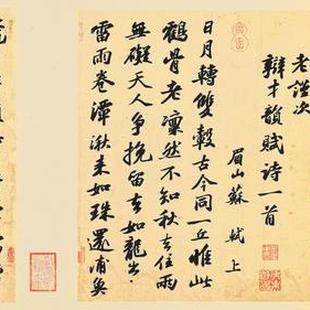 老謹次
辯才韻賦詩一首
眉山蘇軾上
日月轉雙轂古今同一丘惟此
鶴骨老凜然不知秋去住兩
無礙天人爭挽留去如龍出
雷雨卷潭湫來如珠還浦魚